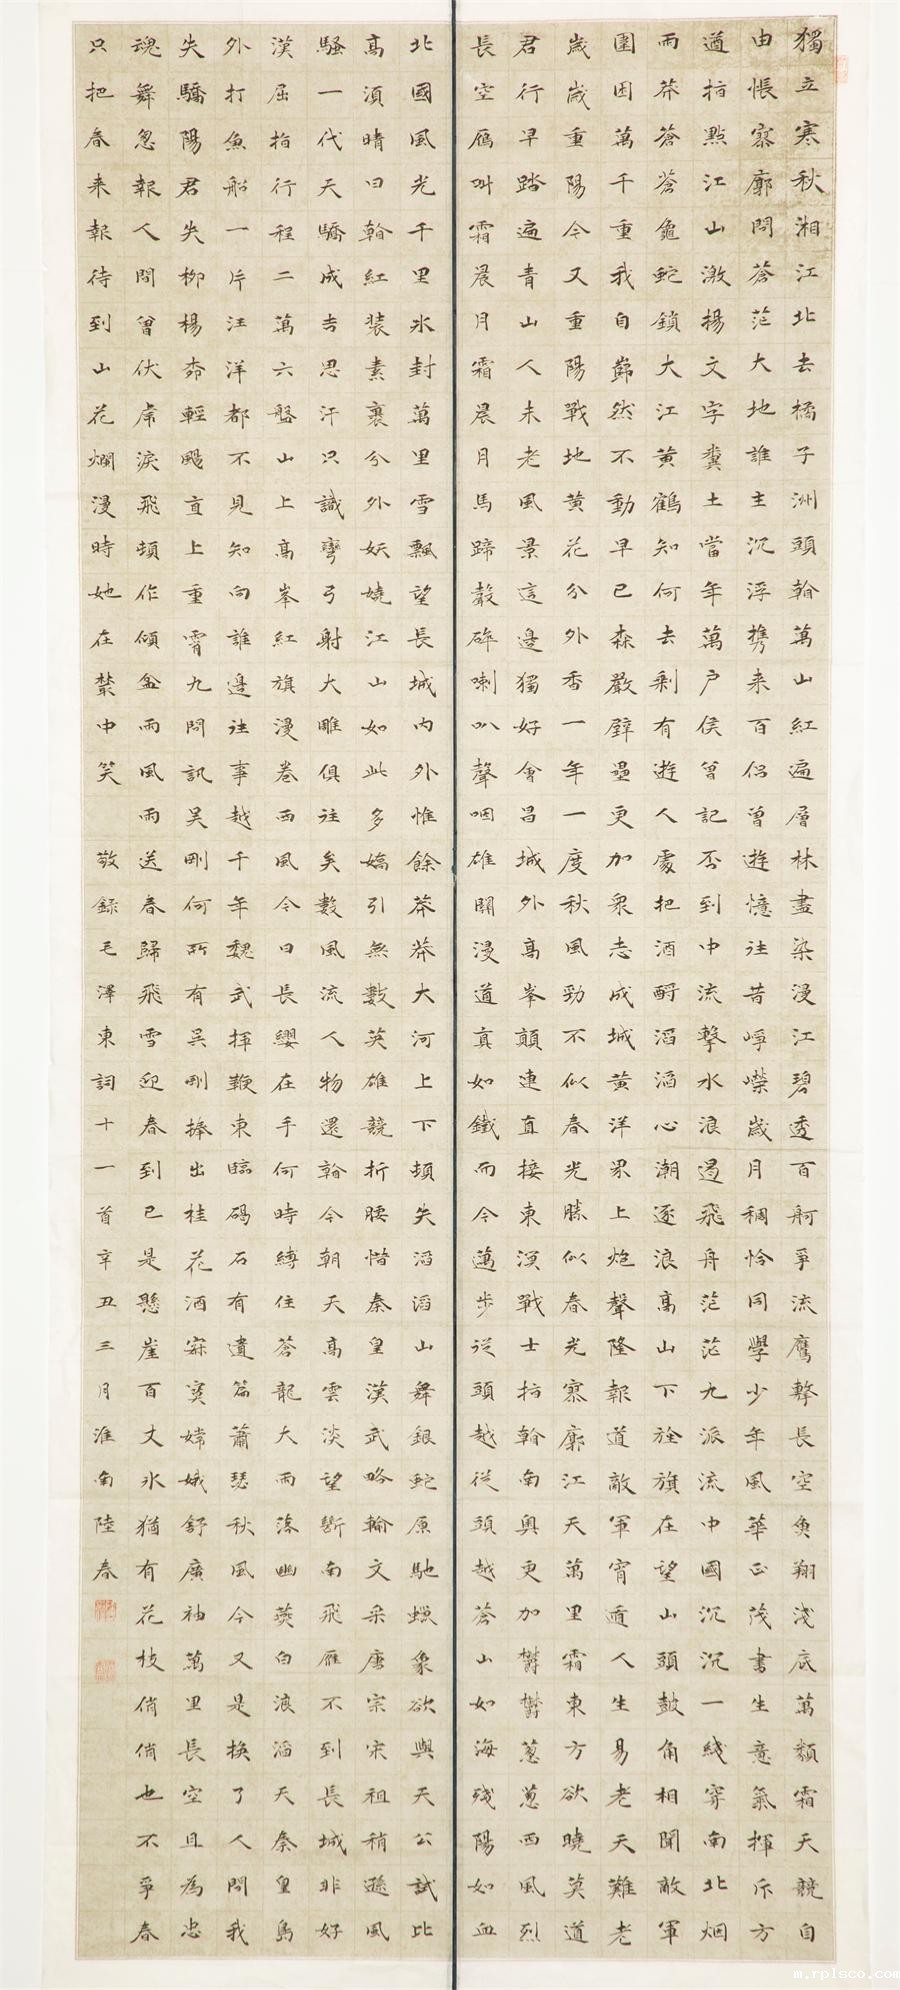 獨立寒秋湘江北去橘子洲頭看萬山紅遍層林盡染漫江碧透百舸爭流鷹擊長空魚翔淺底萬類霜天競自
由悵寥廓問蒼茫大地誰主沉浮攜來百侶曾遊憶往昔崢嶸歲月稠恰同學少年風華正茂書生意氣揮斥方
遒指點江山激揚文字糞土當年萬戶侯曾記否到中流擊水浪遏飛舟茫茫九派流中國沉沉一綫穿南北烟
雨莽蒼蒼龜蛇鎖大江黃鶴知何去剩有遊人處把酒酹滔滔心潮逐浪高山下旌旗在望山頭鼓角相聞敵軍
圍困萬千重我自巋然不動早已森嚴壁壘更加眾志成城黃洋界上炮聲隆報道敵軍宵遁人生易老天難老
歲歲重陽今又重陽戰地黃花分外香一年一度秋風勁不似春光勝似春光寥廓江天萬里霜東方欲曉莫道
君行早踏遍青山人未老風景這邊獨好會昌城外高峯顛連直接東溟戰士指看南粵更加鬱鬱蔥蔥西風烈
長空雁叫霜晨月霜晨月馬蹄聲碎喇叭聲咽雄關漫道真如鐵而今邁步從頭越從頭越蒼山如海殘陽如血
北國風光千里冰封萬里雪飄望長城內外惟餘莽莽大河上下頓失滔滔山舞銀蛇原馳蠟象欲與天公試比
高須晴日看紅裝素裹分外妖嬈江山如此多嬌引無數英雄競折腰惜秦皇漢武略輸文采唐宗宋祖稍遜風
騷一代天驕成吉思汗只識彎弓射大雕俱往矣數風流人物還看今朝天高雲淡望斷南飛雁不到長城非好
漢屈指行程二萬六盤山上高峯紅旗漫卷西風今日長纓在手何時縛住蒼龍大雨落幽燕白浪滔天秦皇島
外打魚船一片汪洋都不見知向誰邊往事越千年魏武揮鞭東臨碣石有遺篇蕭瑟秋風今又是換了人間我
失驕陽君失柳楊柳輕颺直上重霄九問訊吳剛何所有吳剛捧出桂花酒寂寞嫦娥舒廣袖萬里長空且為忠
魂舞忽報人間曾伏虎淚飛頓作傾盆雨風雨送春歸飛雪迎春到已是懸崖百丈冰猶有花枝俏俏也不爭春
只把春來報待到山花爛漫時她在叢中笑 敬錄毛澤東詞十一首辛丑三月淮南陸春
m.rplsco.com